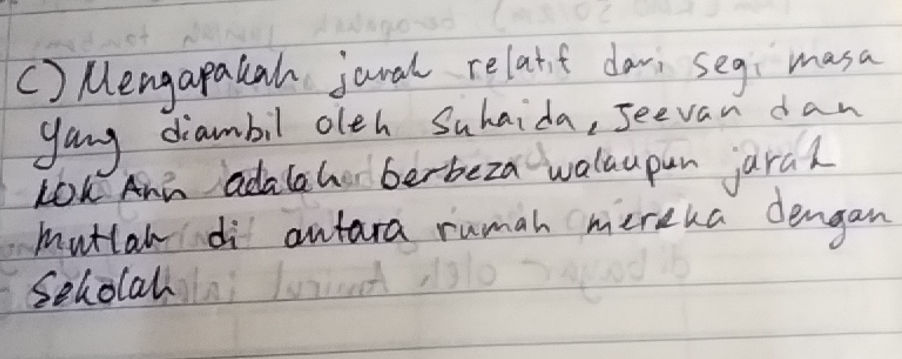 C) Mengapakah jarak relatif dari segi masa
yang diambil oleh Suhaida, Jeevan dan
Lok Ann adalah berbeza walaupun jarak
mutlak di antara rumah mereka dengan
Sekolah